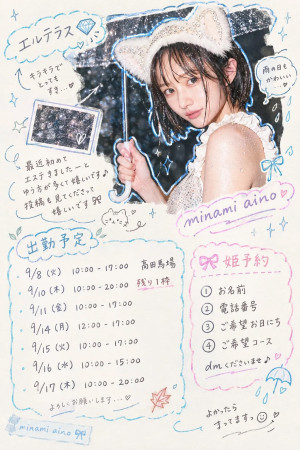 エルテラス
キラキラで
とっても
すき...♡
雨の日も
かわいい
...♡
最近初めて
エステきましたーと
ゆう方が多くて嬉しいです♪
投稿も見てくださって
嬉しいです
minami aino♡
出勤予定
・9/8(火) 10:00-17:00 高田馬場
・9/10(木) 10:00-20:00 残り1枠
・9/11(金) 10:00-17:00
・9/14(月) 12:00-17:00
・9/15(火) 10:00-17:00
・9/16(水) 10:00-15:00
・9/17(木) 10:00-20:00
よろしくお願いします...♡
姫予約
① お名前
② 電話番号
③ ご希望お日にち
④ ご希望コース
dmくださいませ♪
よかったら
すってますっ
minami aino